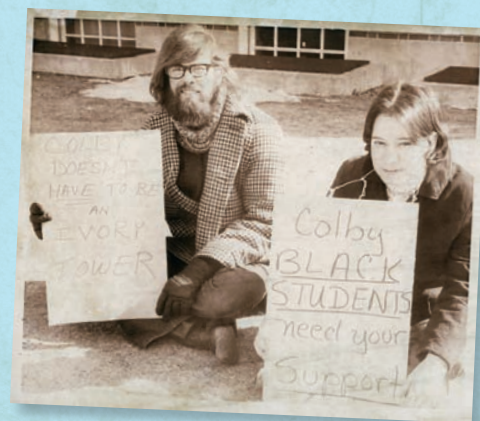 COLBY
DOESN'T
HAVE TO BE
AN
IVORY
TOWER
Colby
BLACK
STUDENTS
need your
Support!